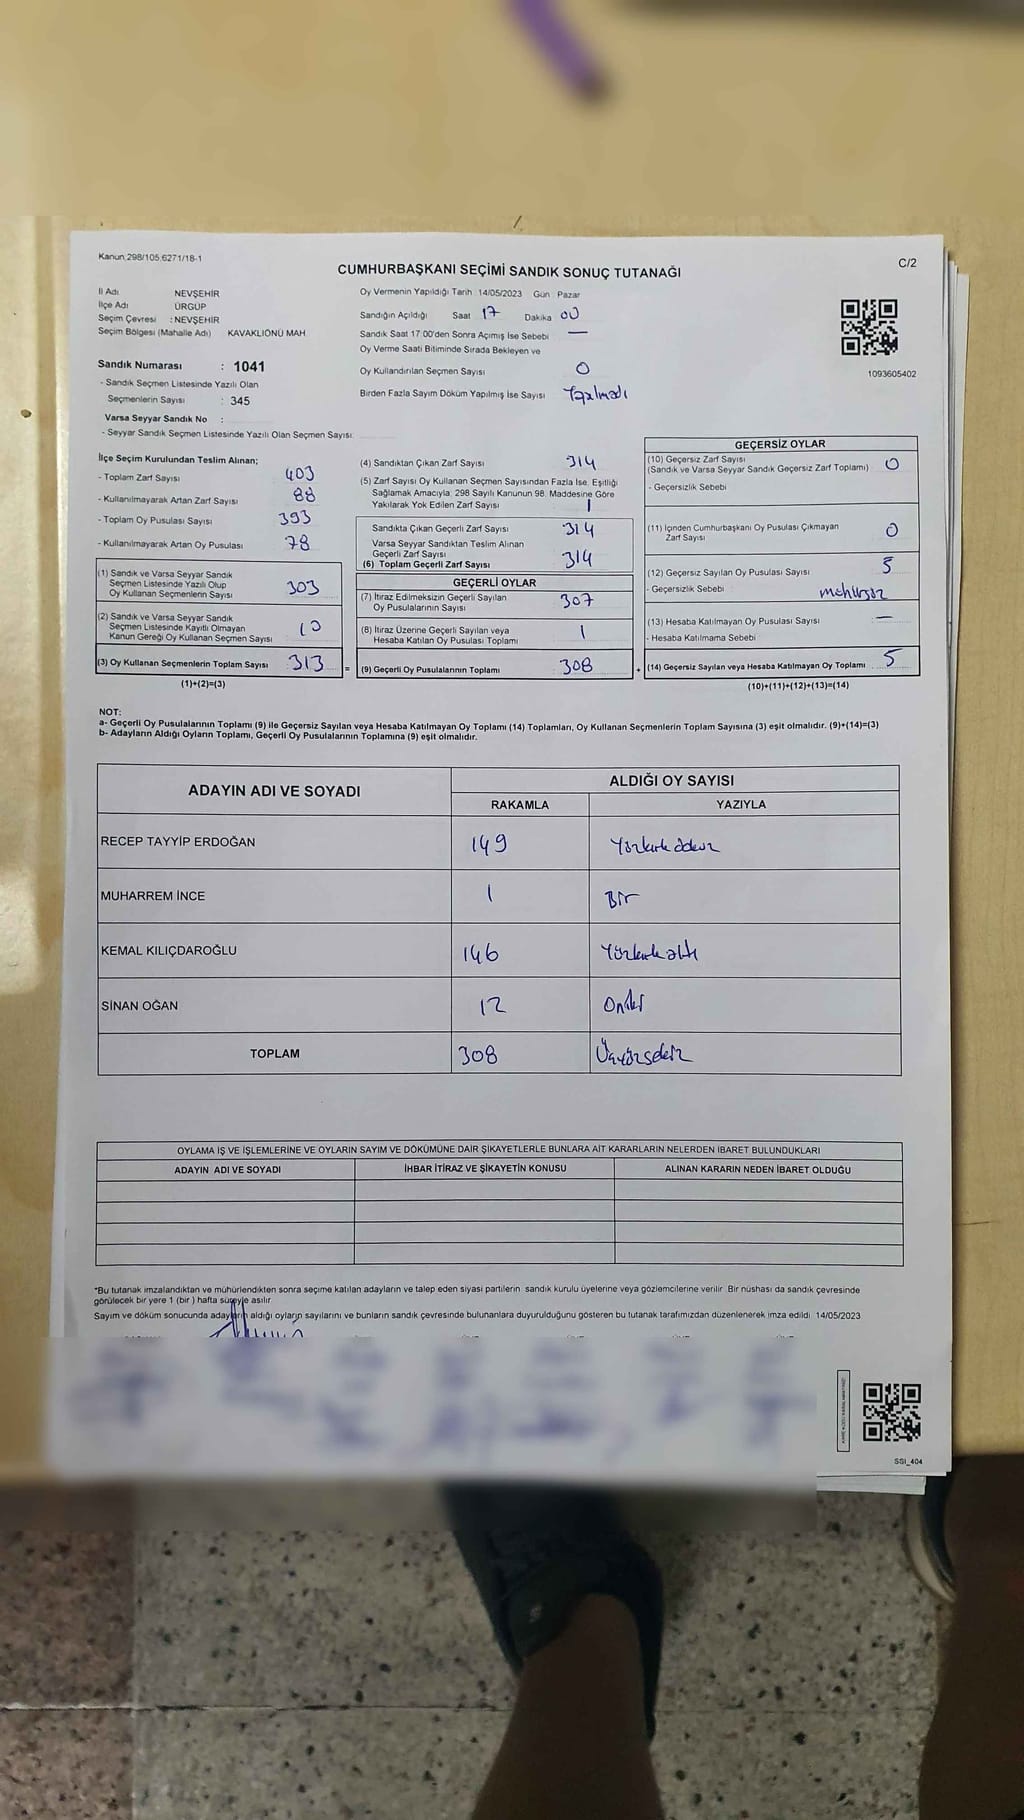 Kanun 298/105,6271/18-1
C/2
CUMHURBAŞKANI SEÇİMİ SANDIK SONUÇ TUTANAĞI
İl Adı NEVŞEHİR
İlçe Adı ÜRGÜP
Seçim Çevresi : NEVŞEHİR
Seçim Bölgesi (Mahalle Adı) KAVAKLIÖNÜ MAH.
Oy Vermenin Yapıldığı Tarih 14/05/2023 Gün Pazar
Sandığın Açıldığı Saat 17 Dakika 00
Sandık Saat 17:00'den Sonra Açımış İse Sebebi —
Oy Verme Saati Bitiminde Sırada Bekleyen ve
Oy Kullandırılan Seçmen Sayısı 0
Birden Fazla Sayım Döküm Yapılmış İse Sayısı Yazılmadı
1093605402
Sandık Numarası : 1041
- Sandık Seçmen Listesinde Yazılı Olan
Seçmenlerin Sayısı : 345
Varsa Seyyar Sandık No :
- Seyyar Sandık Seçmen Listesinde Yazılı Olan Seçmen Sayısı:
İlçe Seçim Kurulundan Teslim Alınan;
- Toplam Zarf Sayısı 403
- Kullanılmayarak Artan Zarf Sayısı 88
- Toplam Oy Pusulası Sayısı 393
- Kullanılmayarak Artan Oy Pusulası 78
(1) Sandık ve Varsa Seyyar Sandık
Seçmen Listesinde Yazılı Olup
Oy Kullanan Seçmenlerin Sayısı 303
(2) Sandık ve Varsa Seyyar Sandık
Seçmen Listesinde Kayıtlı Olmayan
Kanun Gereği Oy Kullanan Seçmen Sayısı 10
(3) Oy Kullanan Seçmenlerin Toplam Sayısı 313 =
(1)+(2)=(3)
(4) Sandıktan Çıkan Zarf Sayısı 314
(5) Zarf Sayısı Oy Kullanan Seçmen Sayısından Fazla İse, Eşitliği
Sağlamak Amacıyla, 298 Sayılı Kanunun 98. Maddesine Göre
Yakılarak Yok Edilen Zarf Sayısı 1
Sandıkta Çıkan Geçerli Zarf Sayısı 314
Varsa Seyyar Sandıktan Teslim Alınan
Geçerli Zarf Sayısı
(6) Toplam Geçerli Zarf Sayısı 314
GEÇERLİ OYLAR
(7) İtiraz Edilmeksizin Geçerli Sayılan
Oy Pusulalarının Sayısı 307
(8) İtiraz Üzerine Geçerli Sayılan veya
Hesaba Katılan Oy Pusulası Toplamı 1
(9) Geçerli Oy Pusulalarının Toplamı 308 +
GEÇERSİZ OYLAR
(10) Geçersiz Zarf Sayısı 0
(Sandık ve Varsa Seyyar Sandık Geçersiz Zarf Toplamı)
- Geçersizlik Sebebi
(11) İçinden Cumhurbaşkanı Oy Pusulası Çıkmayan
Zarf Sayısı 0
(12) Geçersiz Sayılan Oy Pusulası Sayısı 5
- Geçersizlik Sebebi mühürsüz
(13) Hesaba Katılmayan Oy Pusulası Sayısı —
- Hesaba Katılmama Sebebi
(14) Geçersiz Sayılan veya Hesaba Katılmayan Oy Toplamı 5
(10)+(11)+(12)+(13)=(14)
NOT:
a- Geçerli Oy Pusulalarının Toplamı (9) ile Geçersiz Sayılan veya Hesaba Katılmayan Oy Toplamı (14) Toplamları, Oy Kullanan Seçmenlerin Toplam Sayısına (3) eşit olmalıdır. (9)+(14)=(3)
b- Adayların Aldığı Oyların Toplamı, Geçerli Oy Pusulalarının Toplamına (9) eşit olmalıdır.
ADAYIN ADI VE SOYADI ALDIĞI OY SAYISI
RAKAMLA YAZIYLA
RECEP TAYYİP ERDOĞAN 149 Yüzkırkdokuz
MUHARREM İNCE 1 Bir
KEMAL KILIÇDAROĞLU 146 Yüzkırkaltı
SİNAN OĞAN 12 Oniki
TOPLAM 308 Üçyüzsekiz
OYLAMA İŞ VE İŞLEMLERİNE VE OYLARIN SAYIM VE DÖKÜMÜNE DAİR ŞİKAYETLERLE BUNLARA AİT KARARLARIN NELERDEN İBARET BULUNDUKLARI
ADAYIN ADI VE SOYADI İHBAR İTİRAZ VE ŞİKAYETİN KONUSU ALINAN KARARIN NEDEN İBARET OLDUĞU
*Bu tutanak imzalandıktan ve mühürlendikten sonra seçime katılan adayların ve talep eden siyasi partilerin sandık kurulu üyelerine veya gözlemcilerine verilir. Bir nüshası da sandık çevresinde
görülecek bir yere 1 (bir) hafta süreyle asılır.
Sayım ve döküm sonucunda adayların aldığı oyların sayılarını ve bunların sandık çevresinde bulunanlara duyurulduğunu gösteren bu tutanak tarafımızdan düzenlenerek imza edildi. 14/05/2023
SSI_404